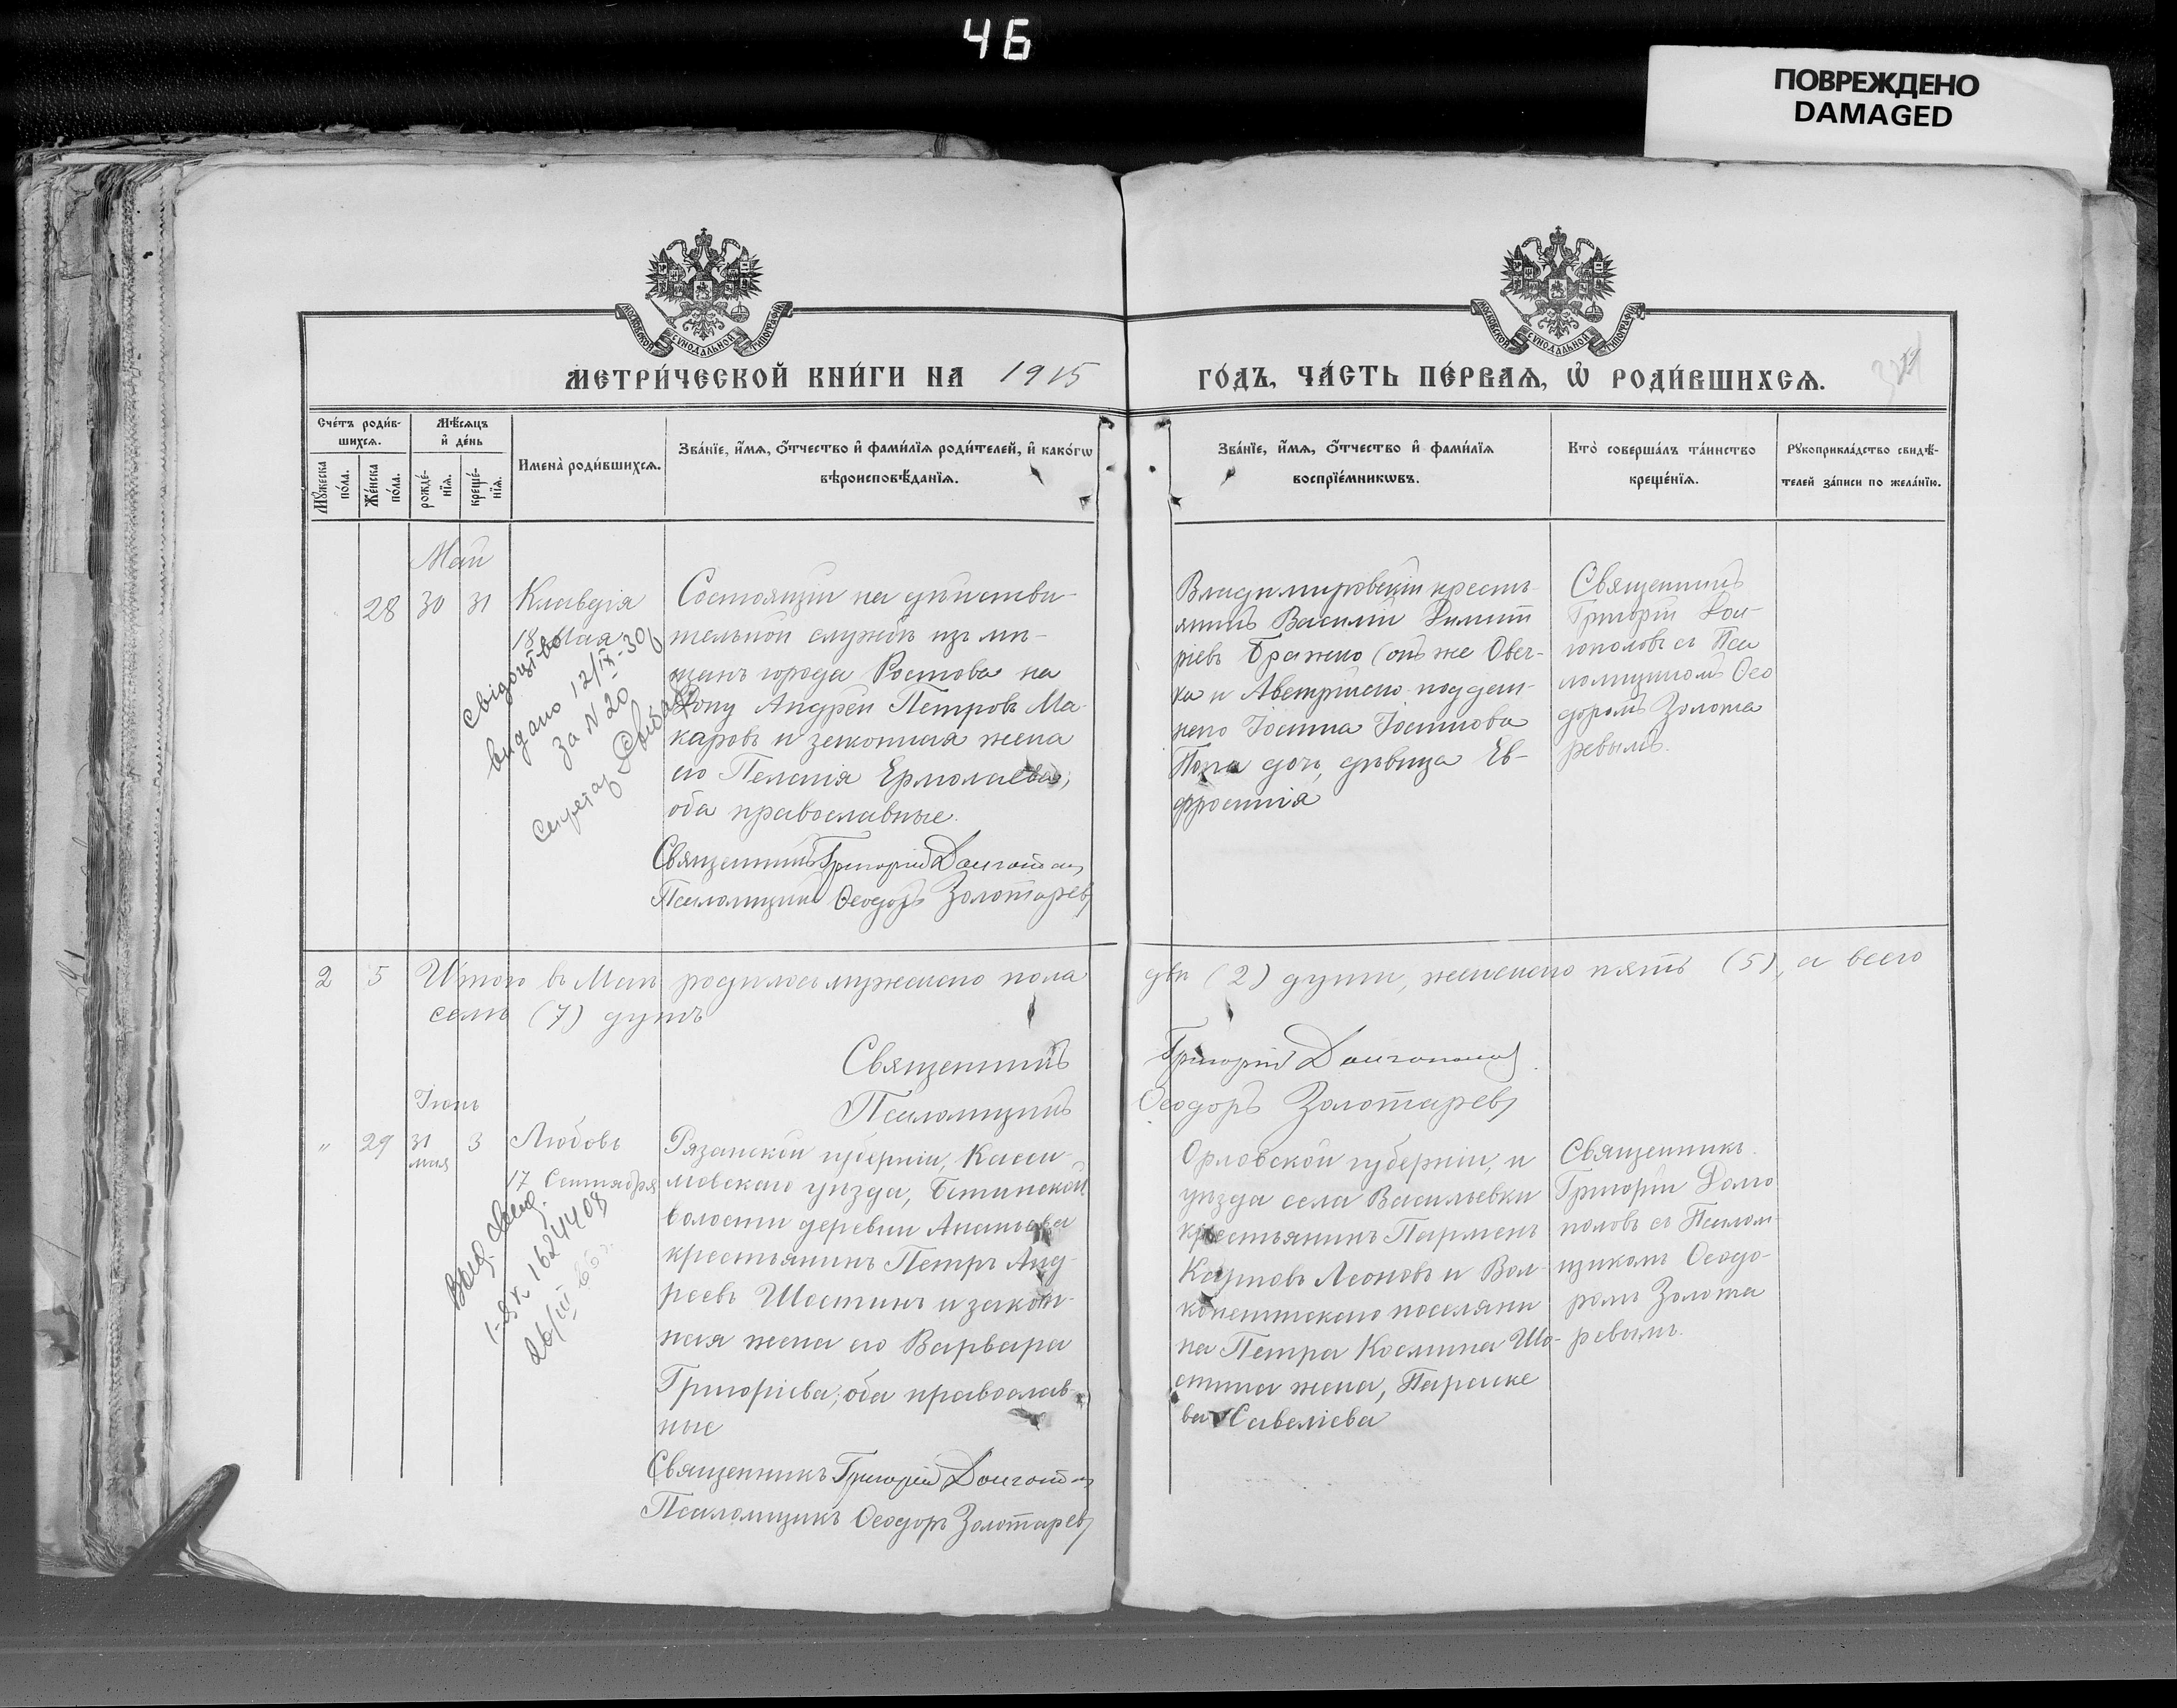 46
ПОВРЕЖДЕНО
DAMAGED
МОСКОВСКОЙ СѴНОДАЛЬНОЙ ТИПОГРАФІИ
МОСКОВСКОЙ СѴНОДАЛЬНОЙ ТИПОГРАФІИ
МЕТРИ́ЧЕСКОЙ КНИ́ГИ НА 1915
ГО́ДЪ, ЧА́СТЬ ПЕ́РВАѦ, Ѡ҆ РОДИ́ВШИХСѦ.
Сче́тъ роди́в-
шихсѧ.
Мꙋ́жеска
по́ла.
Же́нска
по́ла.
Мѣ́сѧцъ
и҆ де́нь
рожде́-
нїѧ.
креще́-
нїѧ.
Имена̀ роди́вшихсѧ.
Зва́нїе, и҆́мѧ, ѻ҆́тчество и҆ фами́лїѧ роди́телей, и҆ како́гѡ
вѣроисповѣ́данїѧ.
Зва́нїе, и҆́мѧ, ѻ҆́тчество и҆ фами́лїѧ
воспрїе́мникѡвъ.
Кто̀ соверша́лъ та́инство
креще́нїѧ.
Рꙋкоприкла́дство свидѣ́-
телей за́писи по жела́нїю.
Май
28 30 31 Клавдія
18 Мая
Свідоцтво
видано 12/IX-30
за N 20
Секретар
Состоящій на дѣйстви-
тельной службѣ изъ мѣ-
щанъ города Ростова на
Дону Андрей Петровъ Ма-
каровъ и законная жена
его Пелагія Ермолаева,
оба православные.
Священникъ Григорій Долгополовъ
Псаломщикъ Ѳеодоръ Золотаревъ
Владимировскій кресть-
янинъ Василій Димит
ріевъ Бражко (онъ же Овеч-
ка и Австрійско-поддан-
наго Іосифа Іосифова
Попа дочь, дѣвица Ев-
фросинія
Священникъ
Григорій Дол-
гополовъ съ Пса
ломщикомъ Ѳео
доромъ Золота
ревымъ.
2 5 Итого въ Маѣ родилось мужескаго пола двѣ (2) души, женскаго пять (5), а всего
семь (7) душъ
Священникъ Григорій Долгополовъ
Псаломщикъ Ѳеодоръ Золотаревъ
Іюнь
" 29 31 мая 3 Любовь
17 Сентября
Выд. свид.
1-ЯК 1624408
26/III 65 г.
Рязанской губерніи, Касси-
мовскаго уѣзда, Бетинской
волости деревни Ананьева
крестьянинъ Петръ Анд-
реевъ Шостинъ и закон-
ная жена его Варвара
Григоріева, оба православ-
ные
Священникъ Григорій Долгополовъ
Псаломщикъ Ѳеодоръ Золотаревъ
Орловской губерніи, и
уѣзда села Васильевки
крестьянинъ Парменъ
Карповъ Леоновъ и Вол-
конештскаго поселяни
на Петра Космина Шо-
стина жена, Параске
ва Савеліева
Священникъ
Григорій Долго
половъ съ Псалом
щикомъ Ѳеодо-
ромъ Золота
ревымъ.